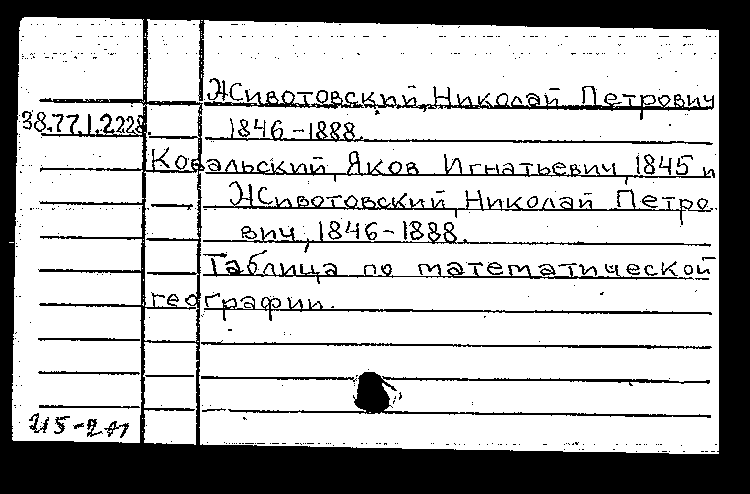 Животовский, Николай Петрович
38.77.1.2228. 1846-1888.
Ковальский, Яков Игнатьевич, 1845 и
Животовский, Николай Петро
вич, 1846-1888.
Таблица по математической
географии.